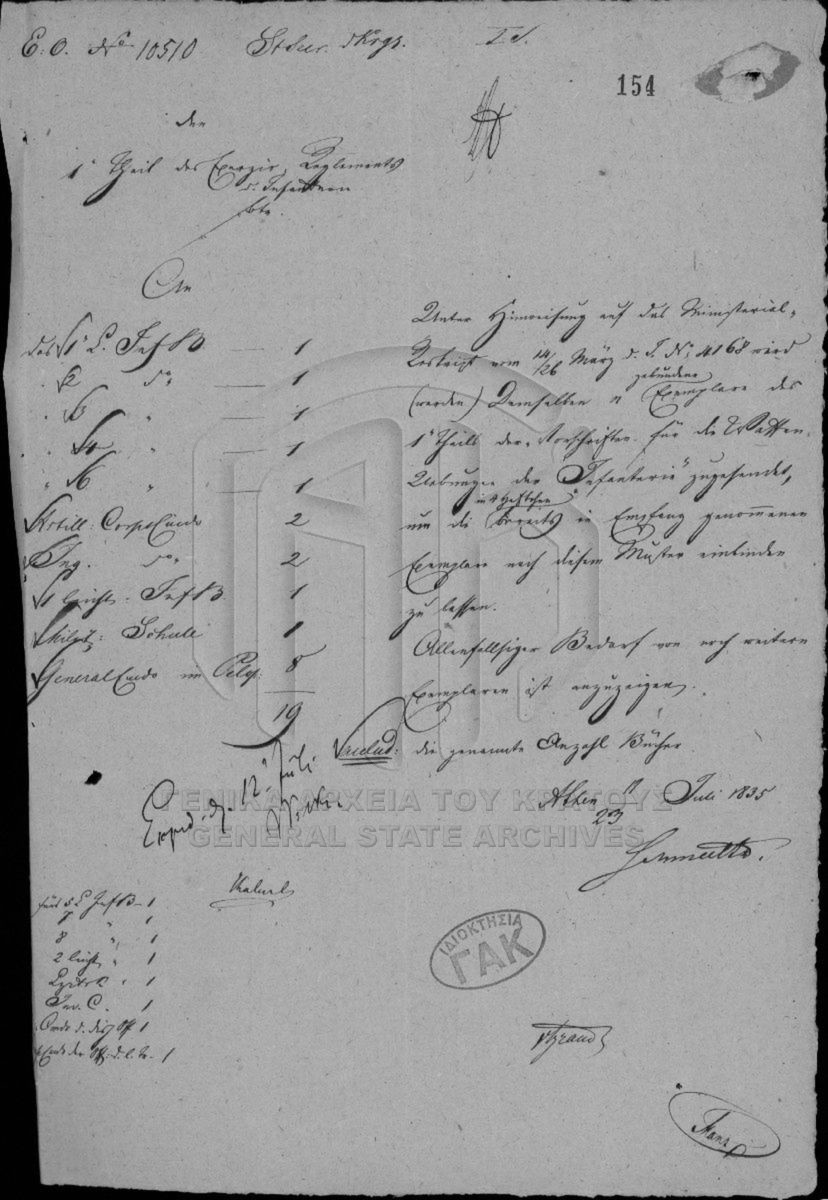 E. O. No 10510
I. S.
154
den
1r Theil des Exerzir Reglements
d. Infanterie
btr.
An
das 1e L. Inf B. — 1
" 2 do — 1
" 3 " 1
" 4 " — 1
" 6 " — 1
Artill: Corps Cmdo 2
Ing. do 2
1 leicht. Inf B. 1
Milit: Schule 1
General Cmdo im Pelop: 8
19
Unter Hinweisung auf das Ministerial-
Reskript vom 14/26 März d. J. No 4168 wird
gebundene
(werden) demselben n Exemplare des
1n Theils der „Vorschriften für die Waffen-
Uebungen der Infanterie" zugesendet,
in 4 Heftchen
um die bereits in Empfang genommenen
Exemplare nach diesem Muster einbinden
zu lassen.
Allenfallsiger Bedarf von noch weitern
Exemplaren ist anzuzeigen.
die genannte Anzahl Bücher
Athen 11/23 Juli 1835
Schmaltz.
Exped. d. 12 Juli
fürs 5 L Inf B — 1
7 " 1
8 " 1
2 leicht " 1
1
1
1
1
ΓΕΝΙΚΑ ΑΡΧΕΙΑ ΤΟΥ ΚΡΑΤΟΥΣ
GENERAL STATE ARCHIVES
ΙΔΙΟΚΤΗΣΙΑ
ΓΑΚ
Franz